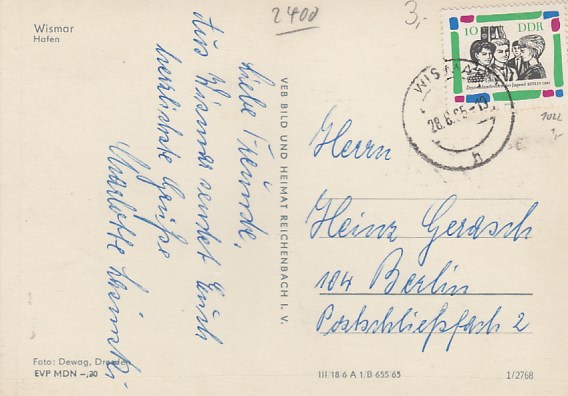 Wismar
Hafen
2400
3,-
10 DDR
WISMAR
28.6.65-19
h
1022
Liebe Freunde,
Aus Wismar sendet Euch
herzlichste Grüße
Charlotte
VEB BILD UND HEIMAT REICHENBACH I. V.
Herrn
Heinz Gerasch
104 Berlin
Postschließfach 2
Foto: Dewag, Dresden
EVP MDN –,20
III/18/6 A 1/B 655/65
1/2768